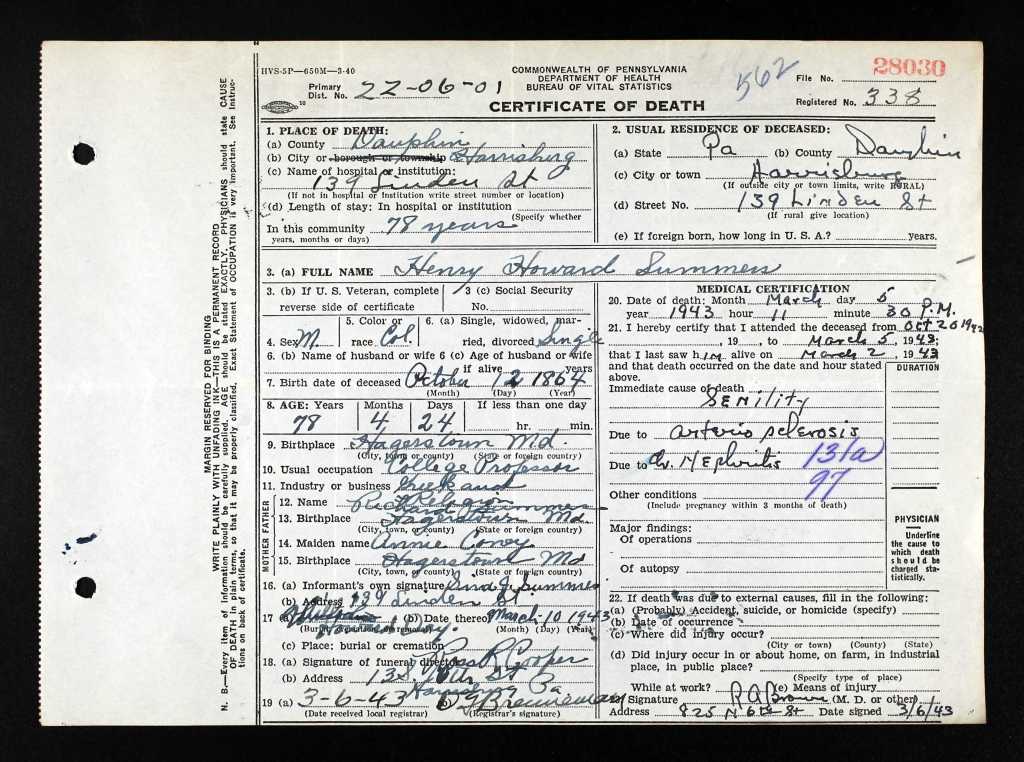 HVS-5P—650M—3-40
COMMONWEALTH OF PENNSYLVANIA
DEPARTMENT OF HEALTH
BUREAU OF VITAL STATISTICS
CERTIFICATE OF DEATH
Primary Dist. No. 22-06-01
562
File No. 28030
Registered No. 338
1. PLACE OF DEATH:
(a) County Dauphin
(b) City or borough or township Harrisburg
(c) Name of hospital or institution:
139 Linden St
(If not in hospital or institution write street number or location)
(d) Length of stay: In hospital or institution
(Specify whether
In this community 78 years
years, months or days)
2. USUAL RESIDENCE OF DECEASED:
(a) State Pa (b) County Dauphin
(c) City or town Harrisburg
(If outside city or town limits, write RURAL)
(d) Street No. 139 Linden St
(If rural give location)
(e) If foreign born, how long in U. S. A.? years.
3. (a) FULL NAME Henry Howard Summers
3. (b) If U. S. Veteran, complete reverse side of certificate
3 (c) Social Security No.
4. Sex M. 5. Color or race Col. 6. (a) Single, widowed, married, divorced Single
6. (b) Name of husband or wife 6 (c) Age of husband or wife if alive years
7. Birth date of deceased October 12 1864
(Month) (Day) (Year)
8. AGE: Years Months Days If less than one day
78 4 24 hr. min.
9. Birthplace Hagerstown Md.
(City, town or county) (State or foreign country)
10. Usual occupation College Professor
11. Industry or business Greek and Religion
MOTHER FATHER
12. Name Richard Summers
13. Birthplace Hagerstown Md.
(City, town, or county) (State or foreign country)
14. Maiden name Annie
15. Birthplace Hagerstown Md
(City, town, or county) (State or foreign country)
16. (a) Informant's own signature J. Summers
(b) Address 139 Linden St
17 (b) Date thereof March 10 1943
(Month) (Day) (Year)
(c) Place: burial or cremation
18. (a) Signature of funeral director Ross R Cooper
(b) Address 13 St
Harrisburg Pa
19 (a) 3-6-43
(Date received local registrar) (Registrar's signature)
MEDICAL CERTIFICATION
20. Date of death: Month March day 5
year 1943 hour 11 minute 30 P.M.
21. I hereby certify that I attended the deceased from Oct 20 1942
, 19 , to March 5, 1943;
that I last saw him alive on March 2, 1943
and that death occurred on the date and hour stated above.
DURATION
Immediate cause of death
Senility
Due to arterio sclerosis
Due to Chr. Nephritis 131a
97
Other conditions
(Include pregnancy within 3 months of death)
Major findings:
Of operations
Of autopsy
PHYSICIAN
Underline the cause to which death should be charged statistically.
22. If death was due to external causes, fill in the following:
(a) (Probably) Accident, suicide, or homicide (specify)
(b) Date of occurrence
(c) Where did injury occur?
(City or town) (County) (State)
(d) Did injury occur in or about home, on farm, in industrial place, in public place?
(Specify type of place)
While at work? (e) Means of injury
Signature R A Brown (M. D. or other)
Address 825 N 6th St Date signed 3/6/43
MARGIN RESERVED FOR BINDING
WRITE PLAINLY WITH UNFADING INK—THIS IS A PERMANENT RECORD
N. B.—Every item of information should be carefully supplied. AGE should be stated EXACTLY. PHYSICIANS should state CAUSE
OF DEATH in plain terms, so that it may be properly classified. Exact Statement of OCCUPATION is very important. See instructions on back of certificate.